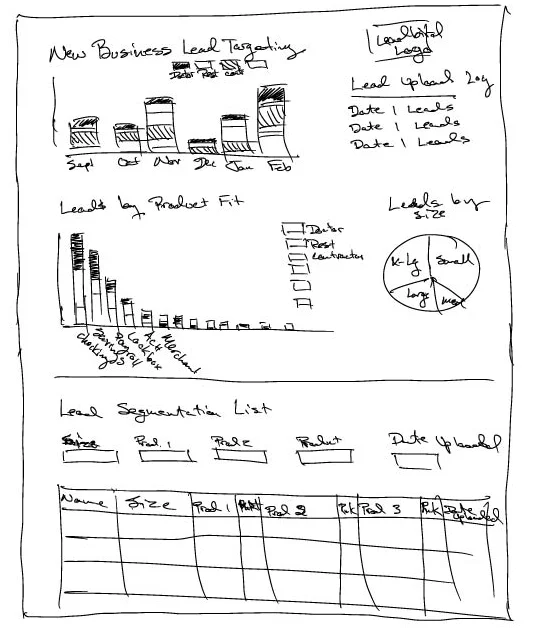 New Business Lead Targeting
Logo
Lead Upload Log
Date | Leads
Date | Leads
Date | Leads
Sept Oct Nov Dec Jan Feb
Leads by Product Fit
Doctor
Rest
Contractor
Leads by
Size
X-Lg Small
Large Med
Checking
Savings
Payroll
Lockbox
ACH
Merchant
Lead Segmentation List
Size Prod. 1 Prod 2 Product Date Uploaded
Name Size Prod 1 Prod 2 Prod 3 Date
Uploaded